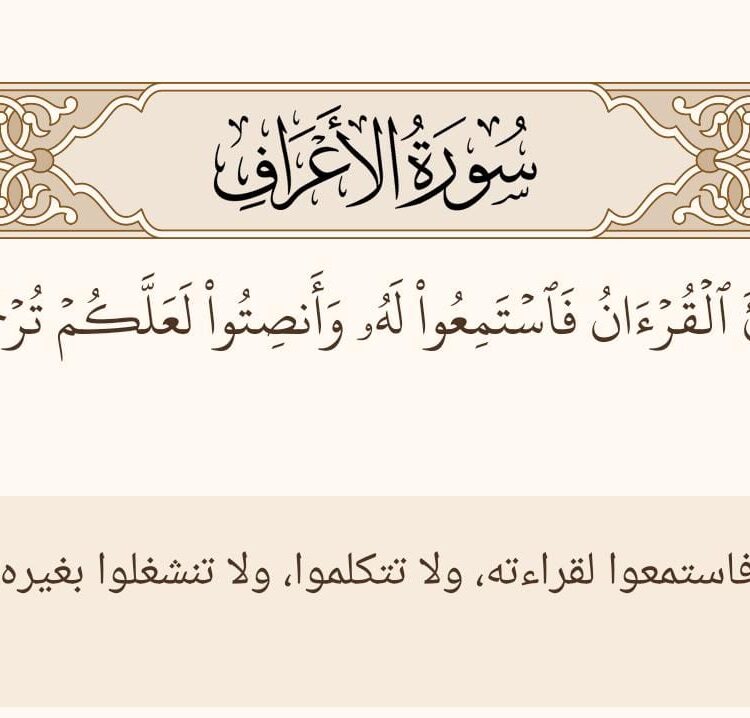 سُورَةُ الأَعْرَافِ
ٱلْقُرْءَانُ فَٱسْتَمِعُوا۟ لَهُۥ وَأَنصِتُوا۟ لَعَلَّكُمْ
فاستمعوا لقراءته، ولا تتكلموا، ولا تنشغلوا بغيره